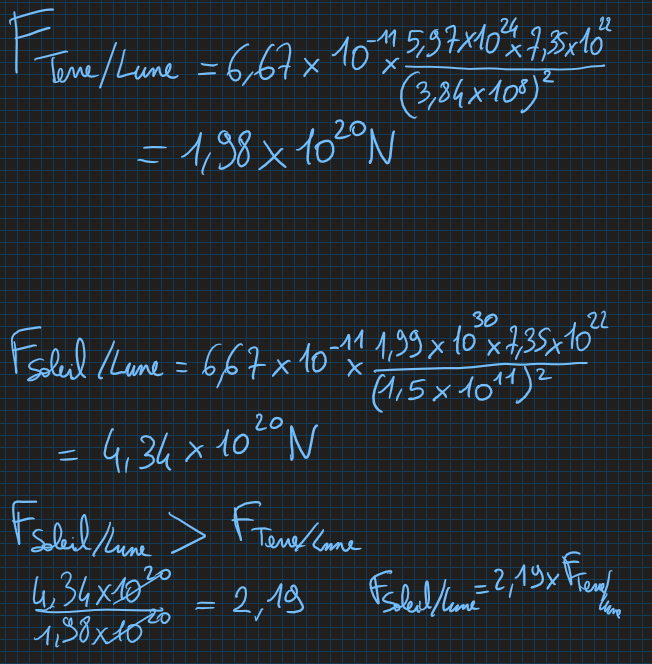 F Terre/Lune = 6,67 × 10⁻¹¹ × (5,97×10²⁴ × 7,35×10²²) / (3,84×10⁸)²
= 1,98 × 10²⁰ N
F Soleil/Lune = 6,67 × 10⁻¹¹ × (1,99 × 10³⁰ × 7,35×10²²) / (1,5 × 10¹¹)²
= 4,34 × 10²⁰ N
F Soleil/Lune > F Terre/Lune
4,34×10²⁰ / 1,98×10²⁰ = 2,19 F Soleil/Lune = 2,19 × F Terre/Lune